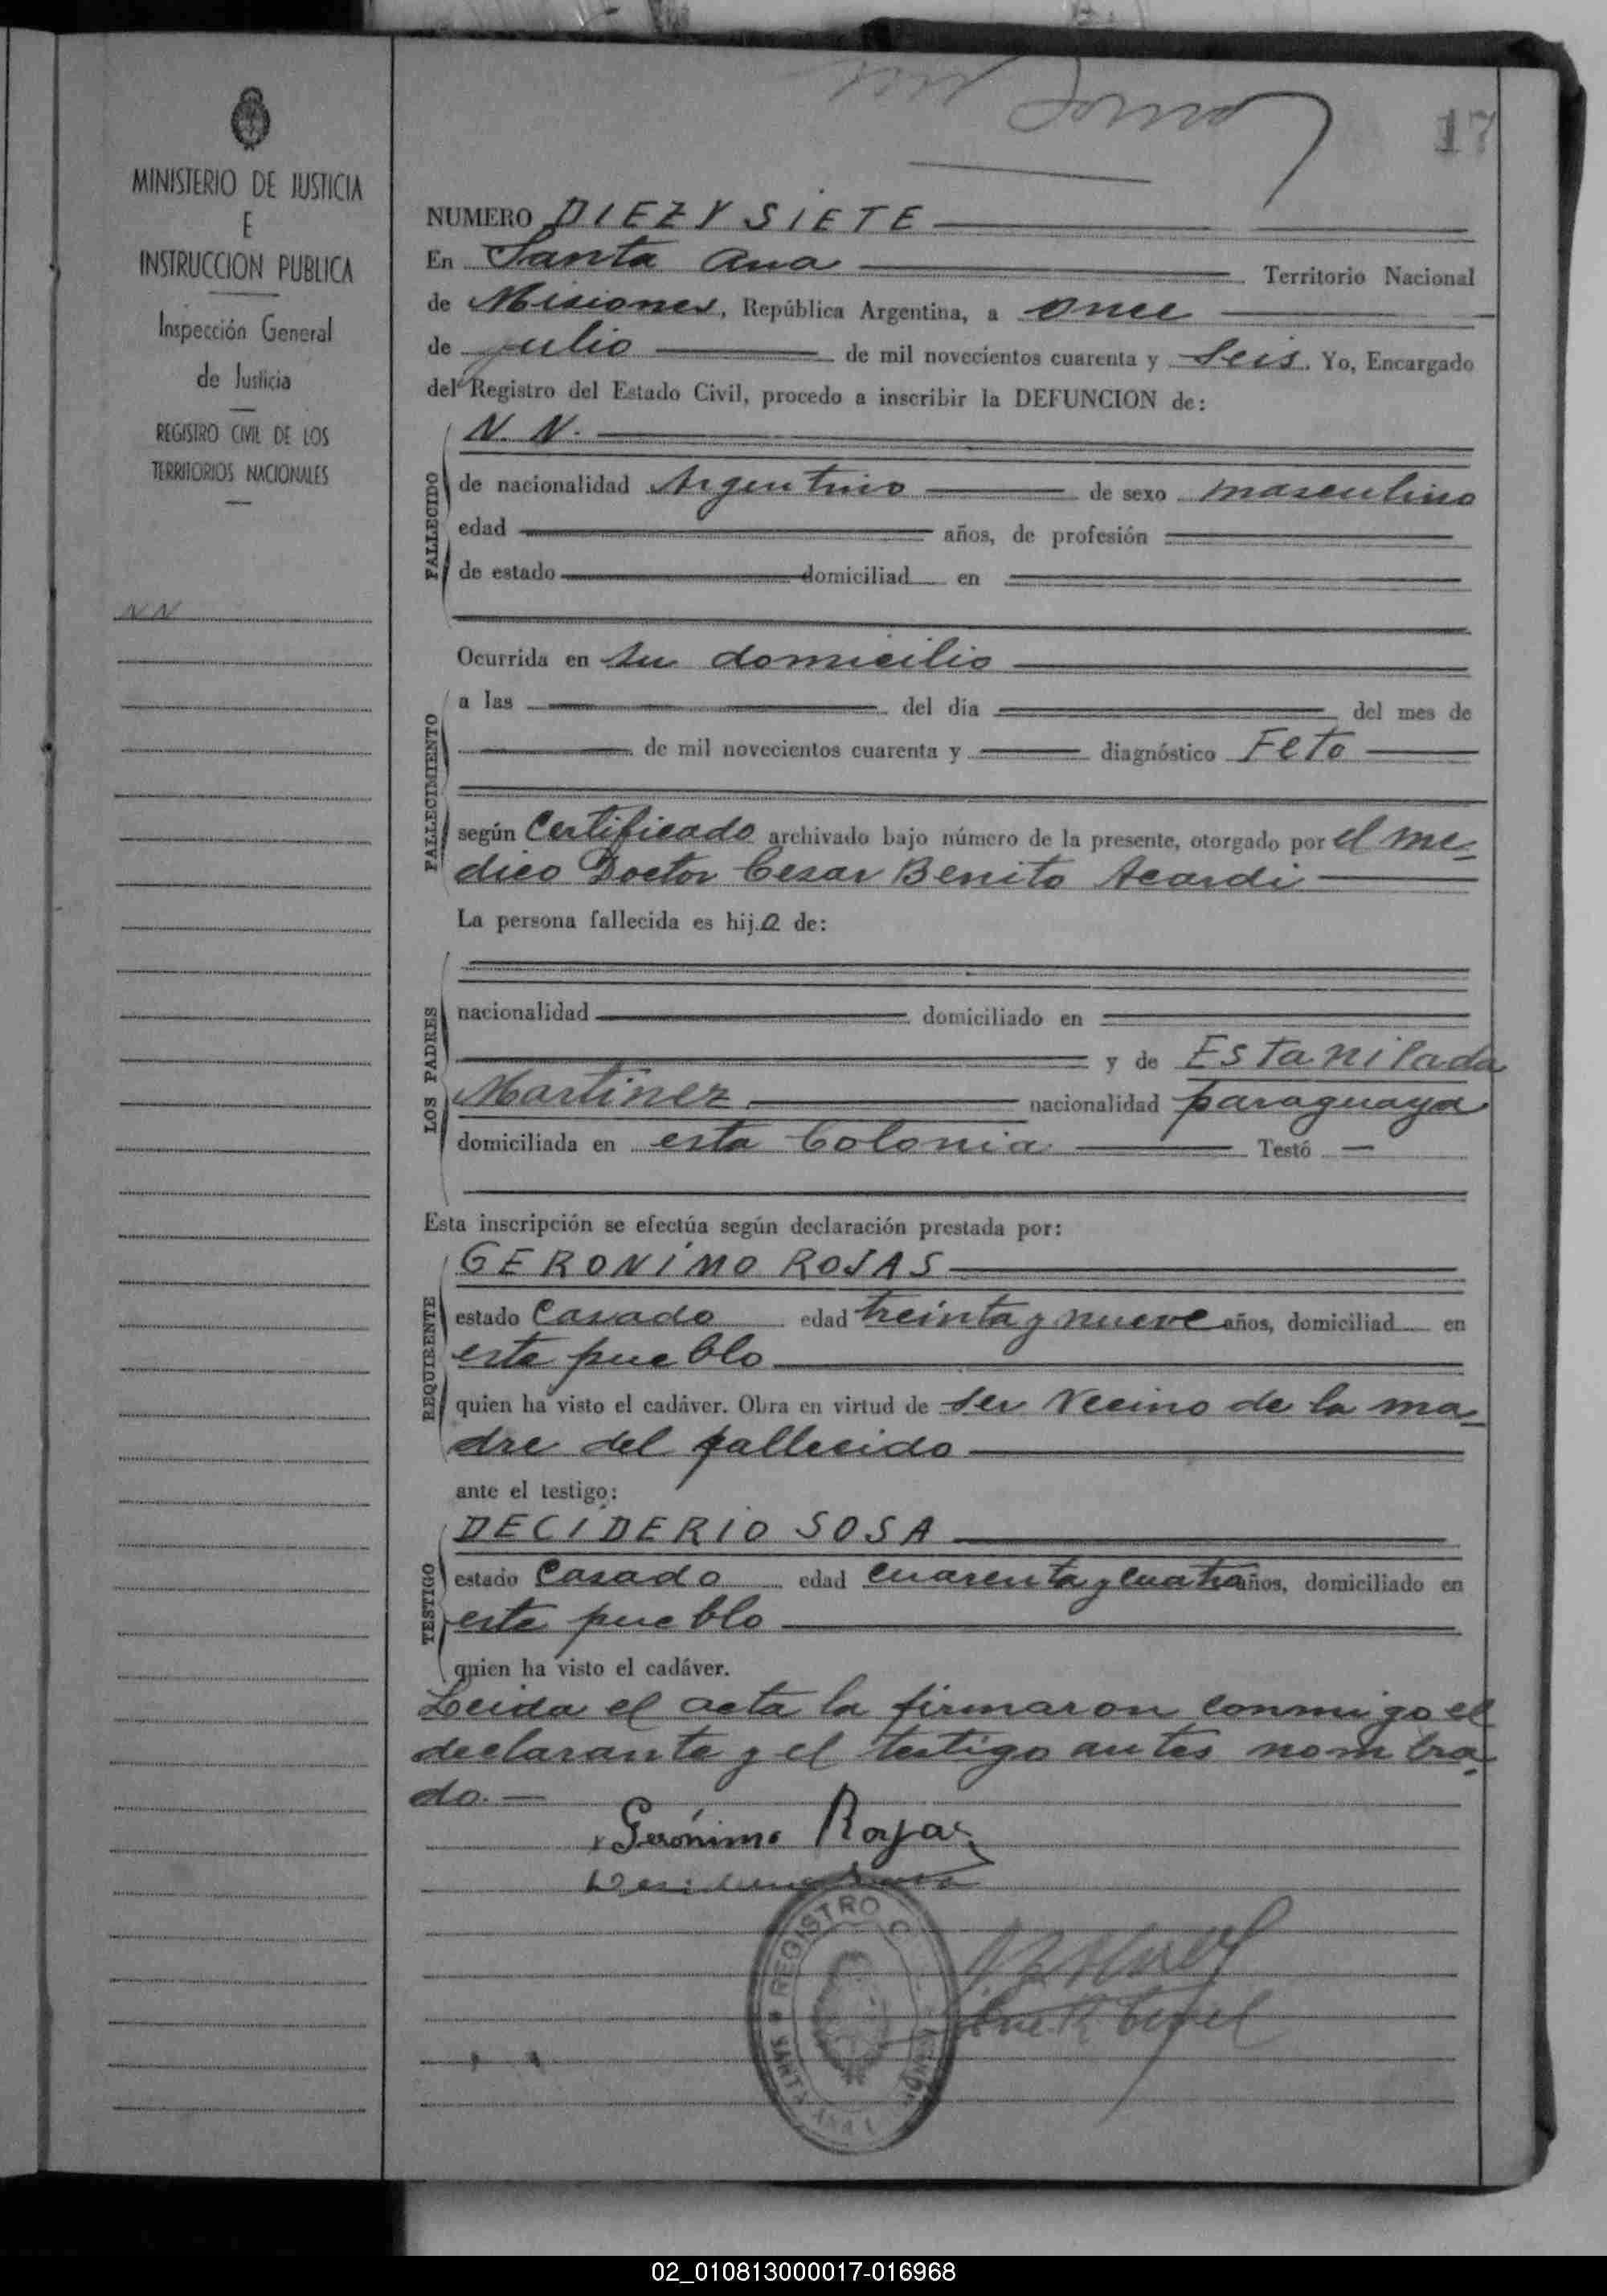 17
MINISTERIO DE JUSTICIA
E
INSTRUCCION PUBLICA
Inspección General
de Justicia
REGISTRO CIVIL DE LOS
TERRITORIOS NACIONALES
N N
NUMERO DIEZ Y SIETE
En Santa Ana Territorio Nacional
de Misiones, República Argentina, a once
de julio de mil novecientos cuarenta y seis. Yo, Encargado
del Registro del Estado Civil, procedo a inscribir la DEFUNCION de:
N. N.
FALLECIDO
de nacionalidad Argentino de sexo masculino
edad años, de profesión
de estado domiciliad en
Ocurrida en su domicilio
FALLECIMIENTO
a las del día del mes de
de mil novecientos cuarenta y diagnóstico Feto
según Certificado archivado bajo número de la presente, otorgado por el me-
dico Doctor Cesar Benito Acardi
La persona fallecida es hijo de:
LOS PADRES
nacionalidad domiciliado en
y de Estanilada
Martinez nacionalidad paraguaya
domiciliada en esta Colonia Testó
Esta inscripción se efectúa según declaración prestada por:
GERONIMO ROJAS
REQUIRENTE
estado Casado edad treinta y nueve años, domiciliad en
este pueblo
quien ha visto el cadáver. Obra en virtud de ser Vecino de la ma-
dre del fallecido
ante el testigo:
DECIDERIO SOSA
TESTIGO
estado Casado edad cuarenta y cuatro años, domiciliado en
este pueblo
quien ha visto el cadáver.
Leida el acta la firmaron conmigo el
declarante y el testigo antes nombra-
do.
Gerónimo Rojas
REGISTRO C
SANTA ANA
02_010813000017-016968